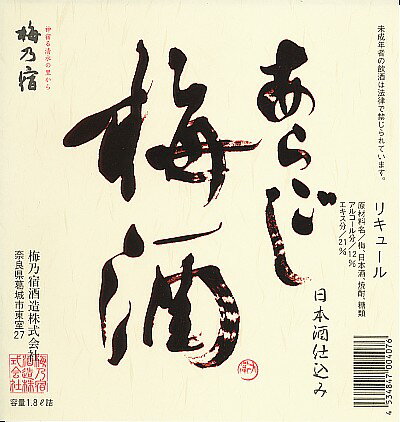 未成年者の飲酒は法律で禁じられています。
リキュール
原材料名／梅、日本酒、焼酎、糖類
アルコール分／12%
エキス分／21%
あらごし
梅酒
日本酒仕込み
神宿る清水の里から
梅乃宿
梅乃宿酒造株式会社
奈良県葛城市東室27
梅乃宿
酒造株
式会社
容量1.8ℓ詰
4 534847 004076